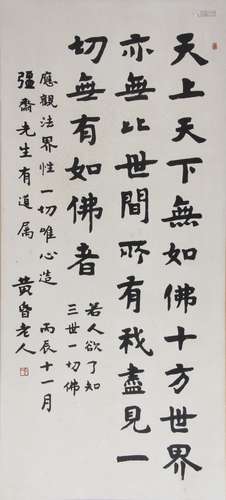 天上天下無如佛十方世界
亦無比世間所有我盡見一
切無有如佛者
若人欲了知
三世一切佛
應觀法界性一切唯心造 丙辰十一月
彊齋先生有道屬 黄昏老人